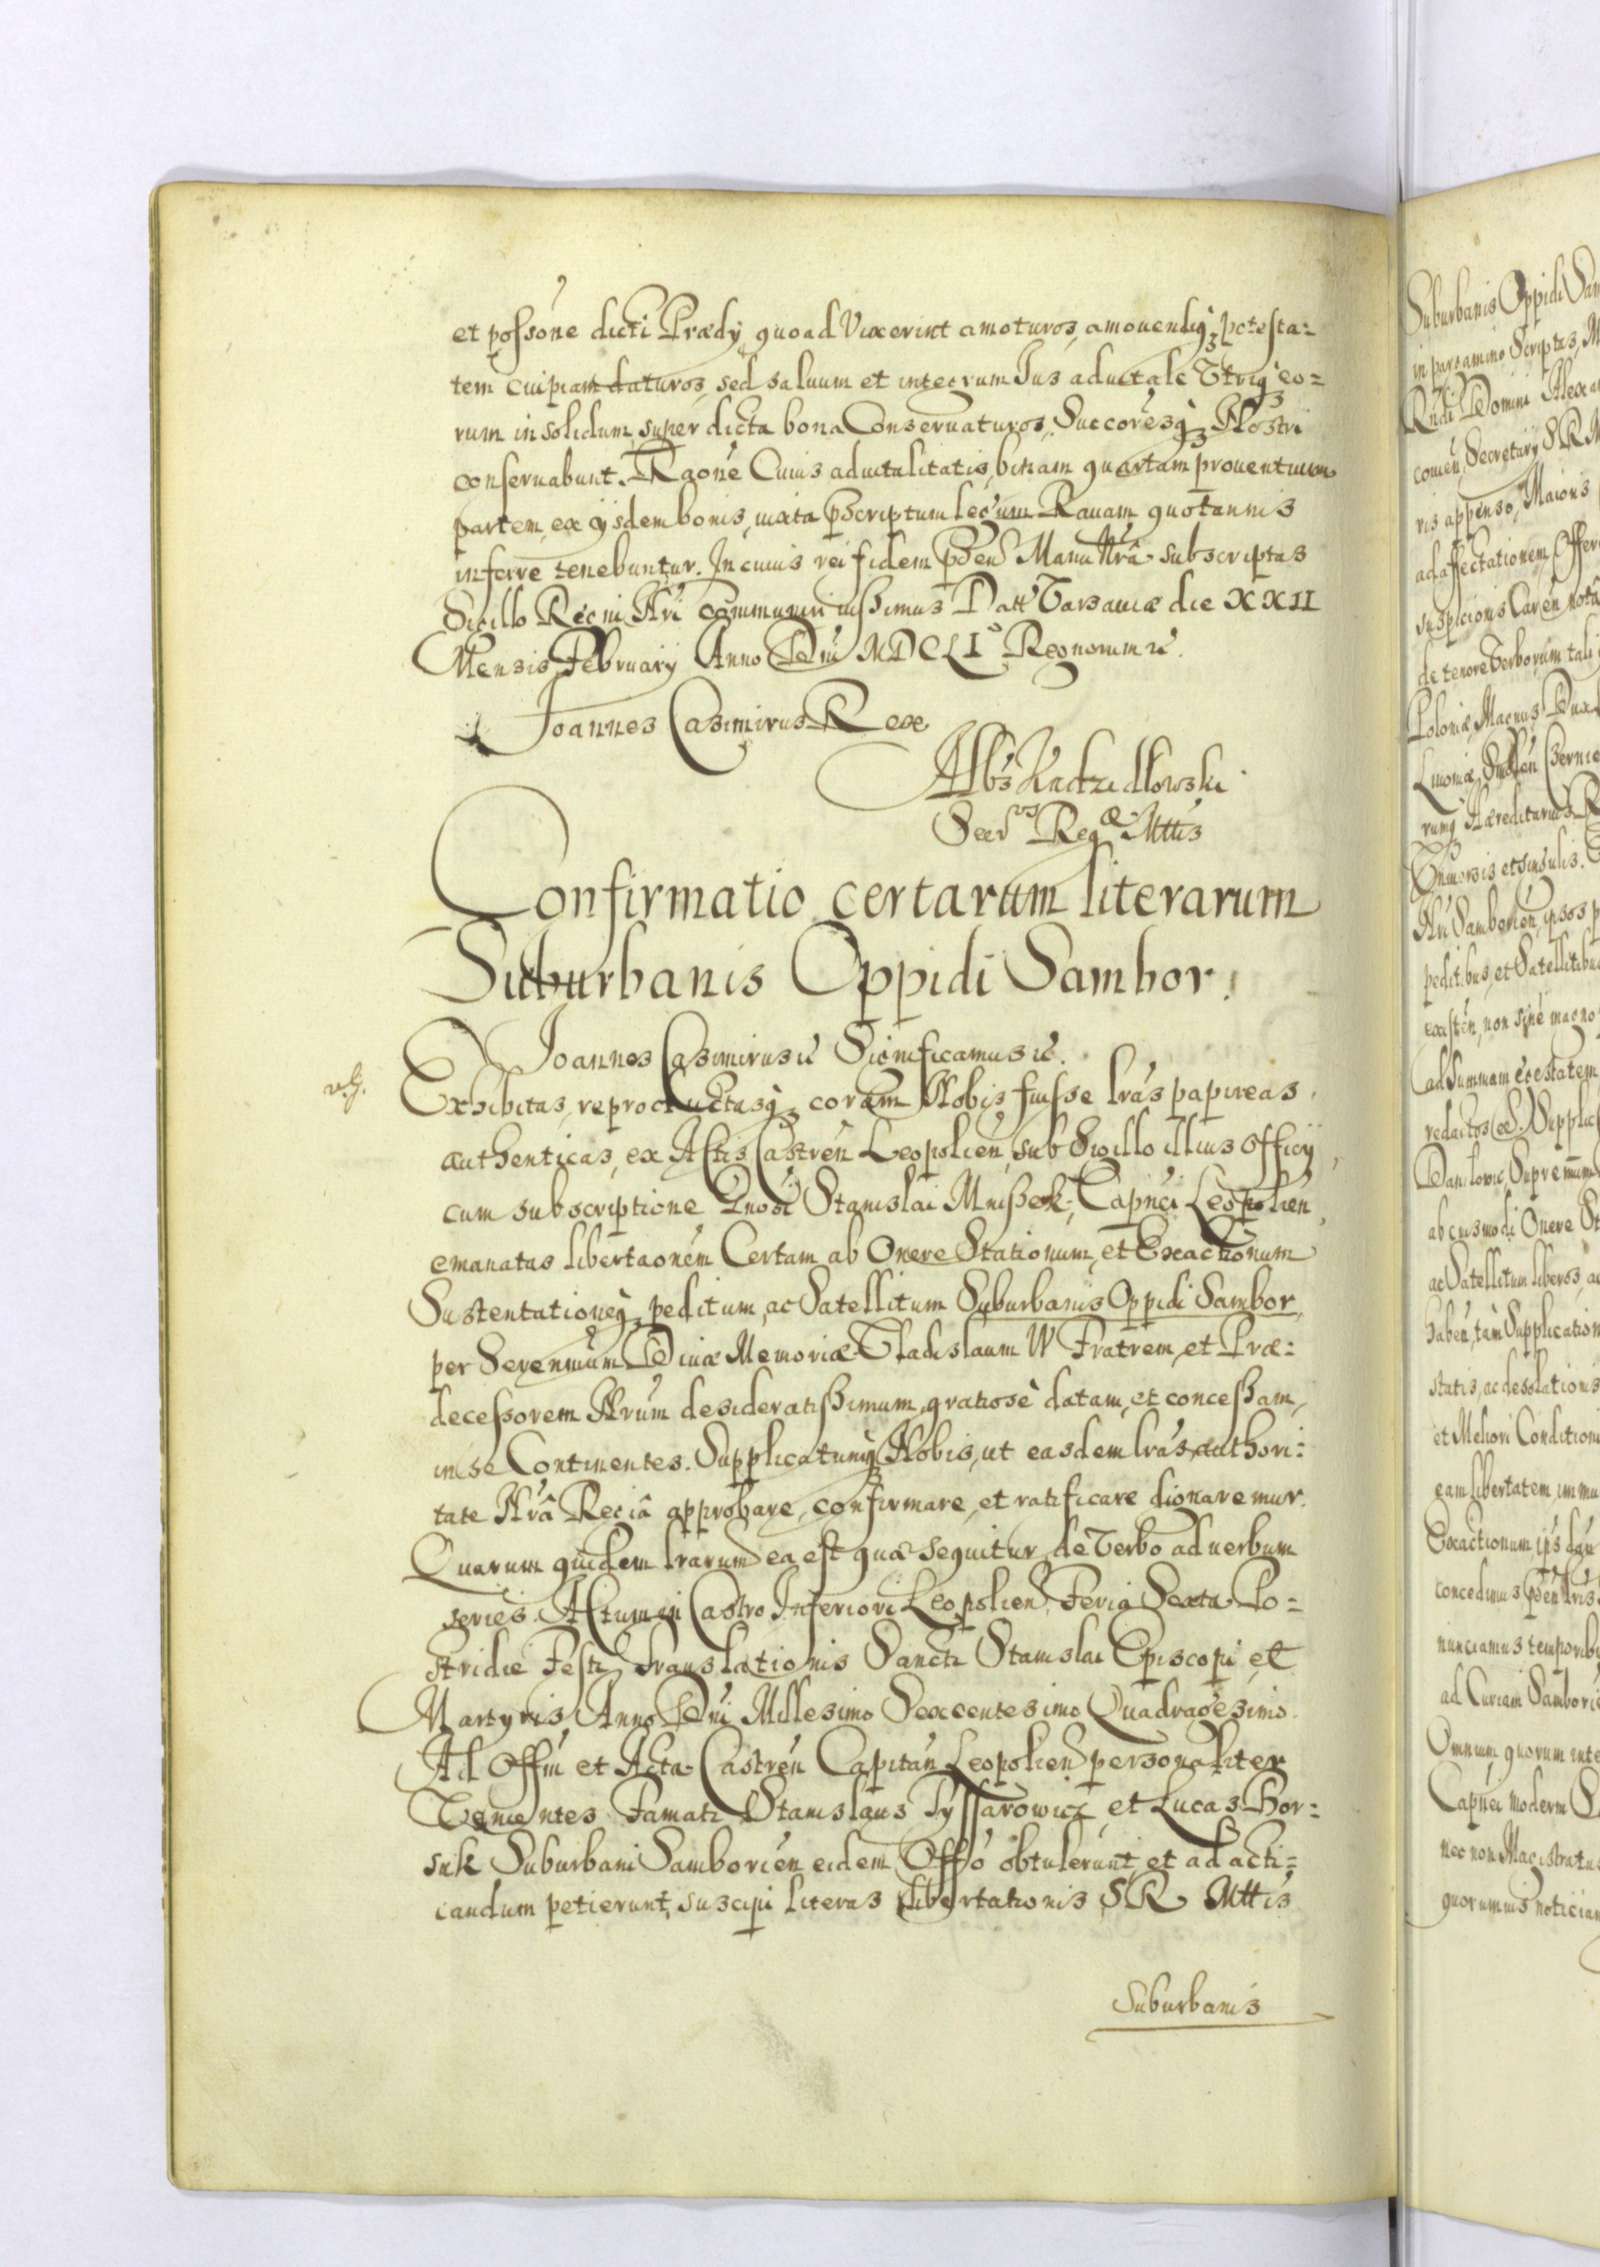 et possone dicti Prædÿ, quoad Vixerint amoturos, amouendiq3 potesta-
tem cuipiam daturos, sed saluum et integrum Ius aduitale Utriq3 eo-
rum in solidum, super dicta bona Conseruaturos, Succoresq3 Nostri
conseruabunt. Raone Cuius aduitalitatis, binam quartam prouentuum
partem, ex ÿsdem bonis, iuxta pscriptum legum Rauam quotannis
inferre tenebuntur. In cuius rei fidem pñ Manu Nrâ subscriptas
Sigillo Regni Nri communiri iussimus Datt Varsauiæ die XXII
Mensis February Anno Dni MDCLI° Regnorum
Joannes Casimirus Rex
Albs Kadzidlowski
Secrus Regæ Mttis
Confirmatio certarum literarum
Suburbanis Oppidi Sambor.
Joannes Casimirus Significamus
Exhibitas, reproductasq3 coram Nobis fuisse lras papireas
authenticas, ex Actis Castren Leopolien, sub Sigillo illius Officÿ,
cum subscriptione Gnosi Stanislai Mniszek, Capnei Leopolien,
emanatas libertaonem Certam ab Onere Stationum, et Exactionum
Sustentationeq3 peditum, ac Satellitum Suburbanis Oppidi Sambor,
per Serenmum Diuæ Memoriæ Vladislaum IV Fratrem, et Præ-
decessorem Nrum desideratissimum, gratiosè datam, et concessam,
in se Continentes. Supplicatumq3 Nobis, ut easdem lras, authori-
tate Nrâ Regiâ approbare, confirmare, et ratificare dignaremur.
Quarum quidem lrarum ea est quæ sequitur de Verbo ad uerbum
series. Actum in Castro Inferiori Leopolien, Feria Sexta Po-
stridie Festi Translationis Sancti Stanislai Episcopi et
Martyris Anno Dni Millesimo Sexcentesimo Quadragesimo.
Ad Offm et Acta Castren Capitan Leopolien personaliter
Venientes Famati Stanislaus Tyssarowicz, et Lucas Bor-
suk Suburbani Samborien eidem Offo obtulerunt, et ad acti-
candum petierunt, suscipi literas libertationis SR Mttis
Suburbanis
Suburbanis Oppidi Sam
in pargamino Scriptas, M
Rndi Domini Alexa
comen, Secretarÿ SRM
ris appenso, Maioris
ad affectationem Offer
suspicionis Caren nota
de tenore Verborum tali
Poloniæ, Magnus Dux
Liuoniæ, Smolen Czernie
rumq Hæreditarius R
Uniuersis et singulis.
Nri Samborien, ipsos
peditibus, et Satellitibus
existen, non sine magno
ad summam egestatem
redactos
Danilowic, Supremum
ab eiusmodi Onere St
ac Satellitum liberos, ac
haben, tam Supplication
statis, ac desolationis
et Meliori Conditioni
eam libertatem immu
Exactionum, ips
concedimus
nunciamus temporib
ad Curiam Sambori
Omnium, quorum inte
Capnei moderni
nec non Magistratus
quorumuis noticiam